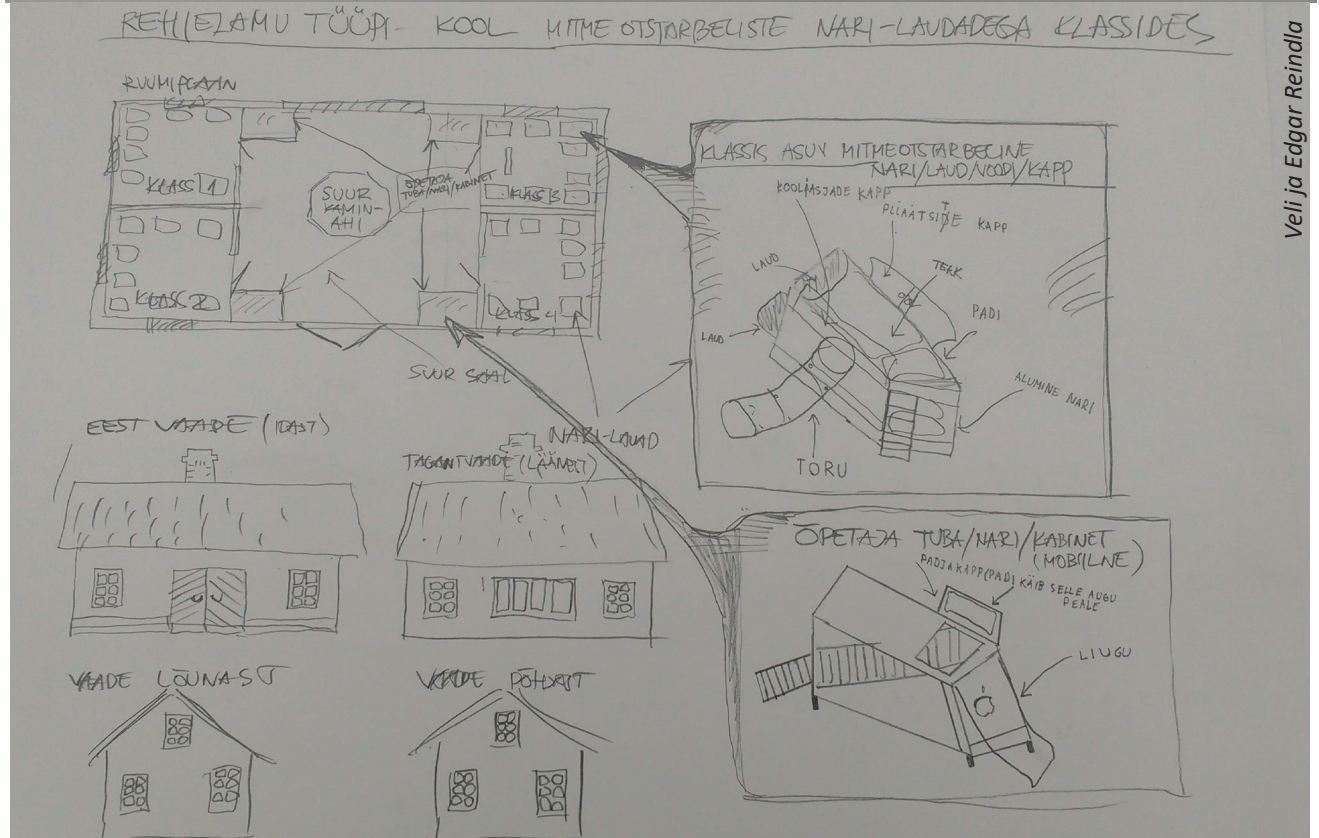 REHIELAMU TÜÜPI- KOOL MITMEOTSTARBELISTE NARI-LAUDADEGA KLASSIDES
Veli ja Edgar Reindla
RUUMIPLAAN
KLASS 1
KLASS 2
SUUR
KAMIN-
AHI
ÕPETAJA
TUBA/NARI/KABINET
KLASS 3
KLASS 4
SUUR SAAL
NARI-LAUAD
KLASSIS ASUV MITMEOTSTARBELINE
NARI/LAUD/NOODI/KAPP
KOOLIASJADE KAPP
PLIIATSITE KAPP
LAUD
TEKK
LAUD
PADI
ALUMINE NARI
TORU
EEST VAADE (IDAST)
TAGANTVAADE (LÄÄNEST)
VAADE LÕUNAST
VAADE PÕHJAST
ÕPETAJA TUBA/NARI/KABINET
(MOBIILNE)
PADJAKAPP(PADI KÄIB SELLE AUGU
PEALE
LIUGU